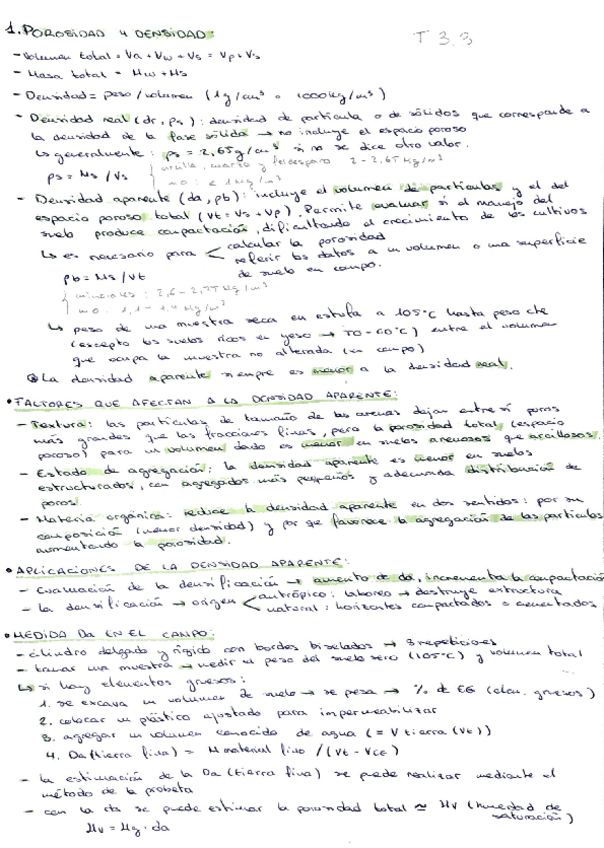 1. POROSIDAD Y DENSIDAD:
T 3.3
- Volumen total = Va + Vw + Vs = Vp + Vs
- Masa total = Mw + Ms
- Densidad = peso / volumen (1g/cm³ o 1000kg/m³)
- Densidad real (dr, ρs): densidad de partícula o de sólidos que corresponde a
la densidad de la fase sólida → no incluye el espacio poroso
↳ generalmente: ρs = 2,65g/cm³ si no se dice otro valor.
ρs = Ms / Vs
arcilla, cuarzo y feldespato 2 - 2,65 Mg/m³
mo: < 1 Mg/m³
- Densidad aparente (da, ρb): incluye el volumen de partículas y el del
espacio poroso total (Vt = Vs + Vp). Permite evaluar si el manejo del
suelo produce compactación, dificultando el crecimiento de los cultivos
↳ es necesario para < calcular la porosidad
referir los datos a un volumen o una superficie
de suelo en campo.
ρb = Ms / Vt
minerales: Mg/m³
mo: Mg/m³
↳ peso de una muestra seca en estufa a 105°C hasta peso cte
(excepto los suelos ricos en yeso → 70-60°C) entre el volumen
que ocupa la muestra no alterada (en campo)
La densidad aparente siempre es menor a la densidad real.
• FACTORES QUE AFECTAN A LA DENSIDAD APARENTE:
- Textura: las partículas de tamaño de las arenas dejan entre sí poros
más grandes que las fracciones finas, pero la porosidad total (espacio
poroso) para un volumen dado es menor en suelos arenosos que arcillosos.
- Estado de agregación: la densidad aparente es menor en suelos
estructurados, con agregados más pequeños y adecuada distribución de
poros.
- Materia orgánica: reduce la densidad aparente en dos sentidos: por su
composición (menor densidad) y por que favorece la agregación de las partículas
aumentando la porosidad.
• APLICACIONES DE LA DENSIDAD APARENTE:
- Evaluación de la densificación → aumento de da, incrementa la compactación
- la densificación → origen < antrópico: laboreo → destruye estructura
natural: horizontes compactados o cementados
• MEDIDA Da EN EL CAMPO:
- cilindro delgado y rígido con bordes biselados → 3 repeticiones
- tomar una muestra → medir el peso del suelo seco (105°C) y volumen total
↳ si hay elementos gruesos:
1. se excava un volumen de suelo → se pesa → % de EG (elem. gruesos)
2. colocar un plástico ajustado para impermeabilizar
3. agregar un volumen conocido de agua (= V tierra (Vt))
4. Da (tierra fina) = M material fino / (Vt - VEG)
- la estimación de la Da (tierra fina) se puede realizar mediante el
método de la probeta
- con la da se puede estimar la porosidad total ≃ Hv (humedad de
saturación)
Hv = Hg · da